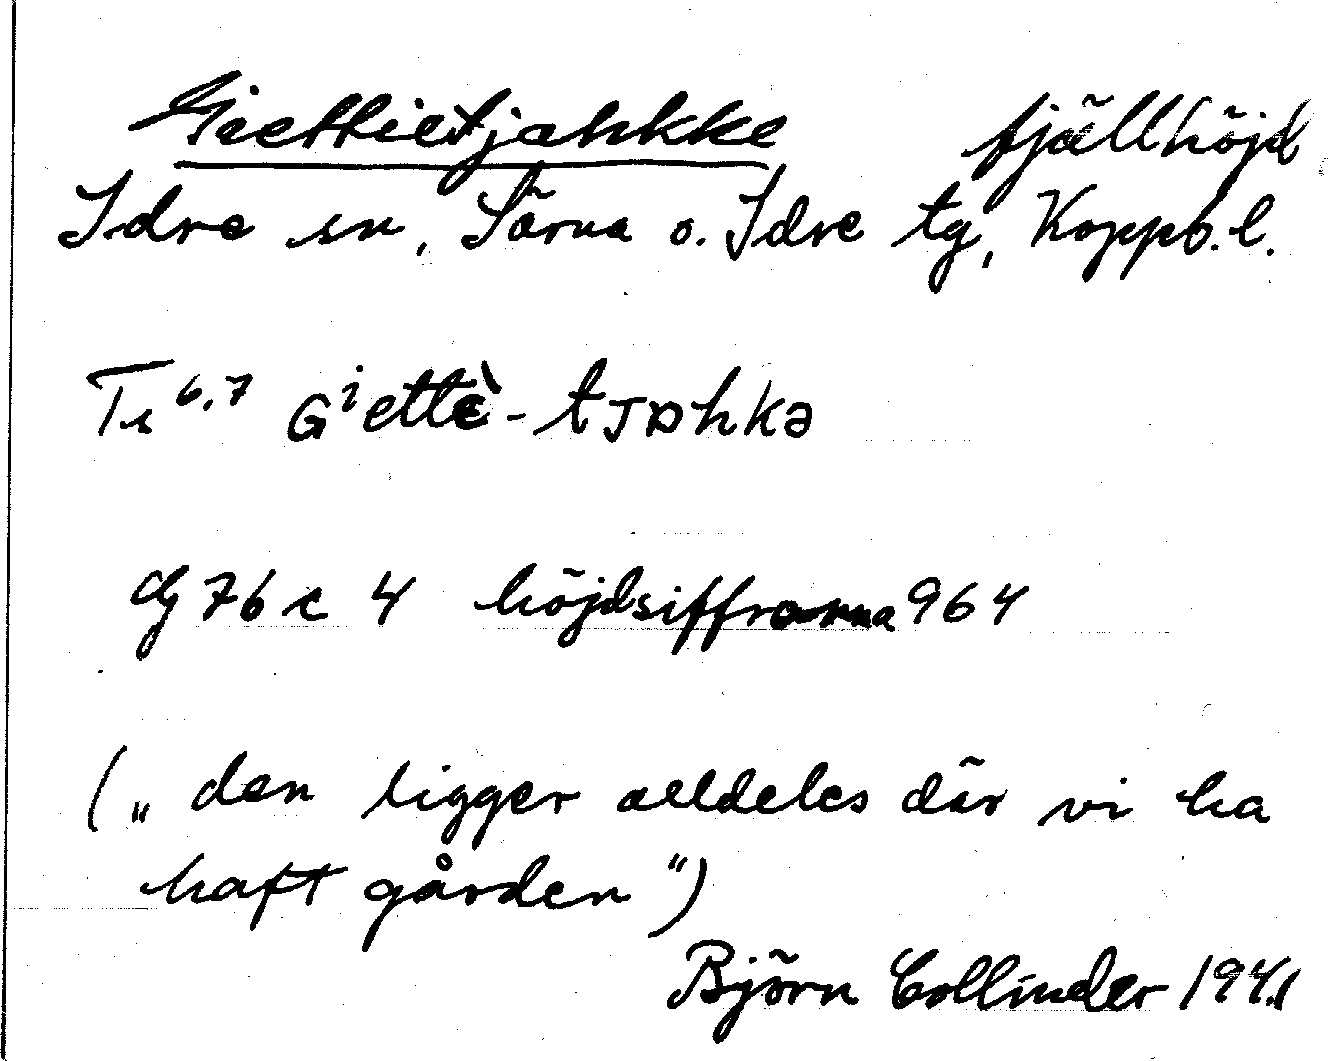 Giettietjahkke fjällhöjd
Idre sn, Särna o. Idre tg, Koppb. l.
Ts 6,7 Gⁱettὲ-tᴊɒhkə
Gg 76 c 4 höjdsiffrorna 964
(„den ligger alldeles där vi ha
haft gården")
Björn Collinder 1941